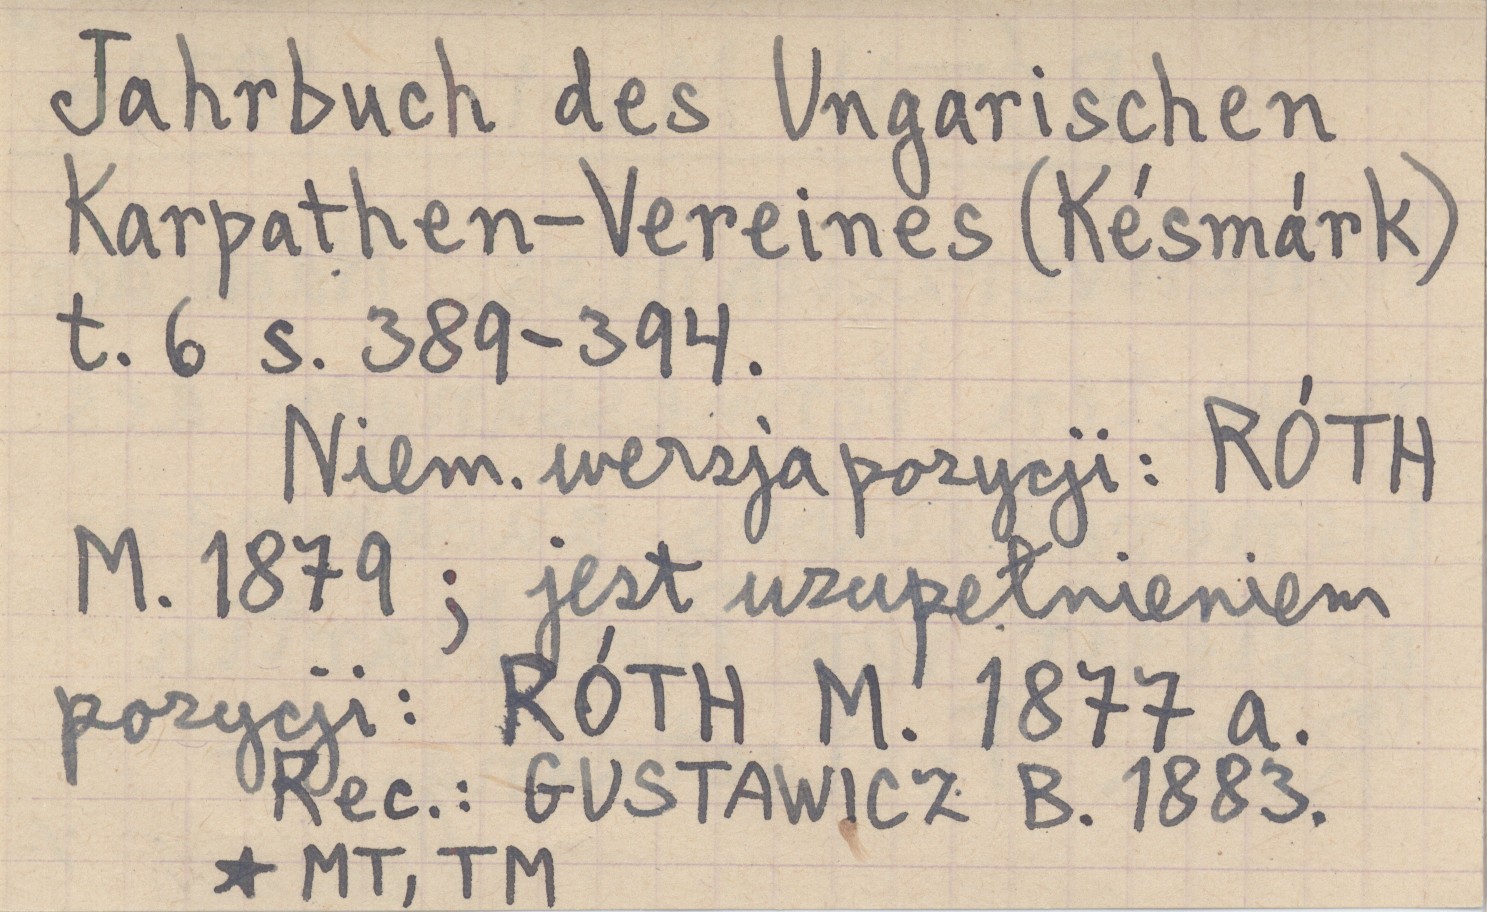 Jahrbuch des Ungarischen
Karpathen-Vereines (Késmárk)
t. 6 s. 389-394.
Niem. wersja pozycji: RÓTH
M. 1879; jest uzupełnieniem
pozycji: RÓTH M. 1877 a.
Rec.: GUSTAWICZ B. 1883.
★ MT, TM